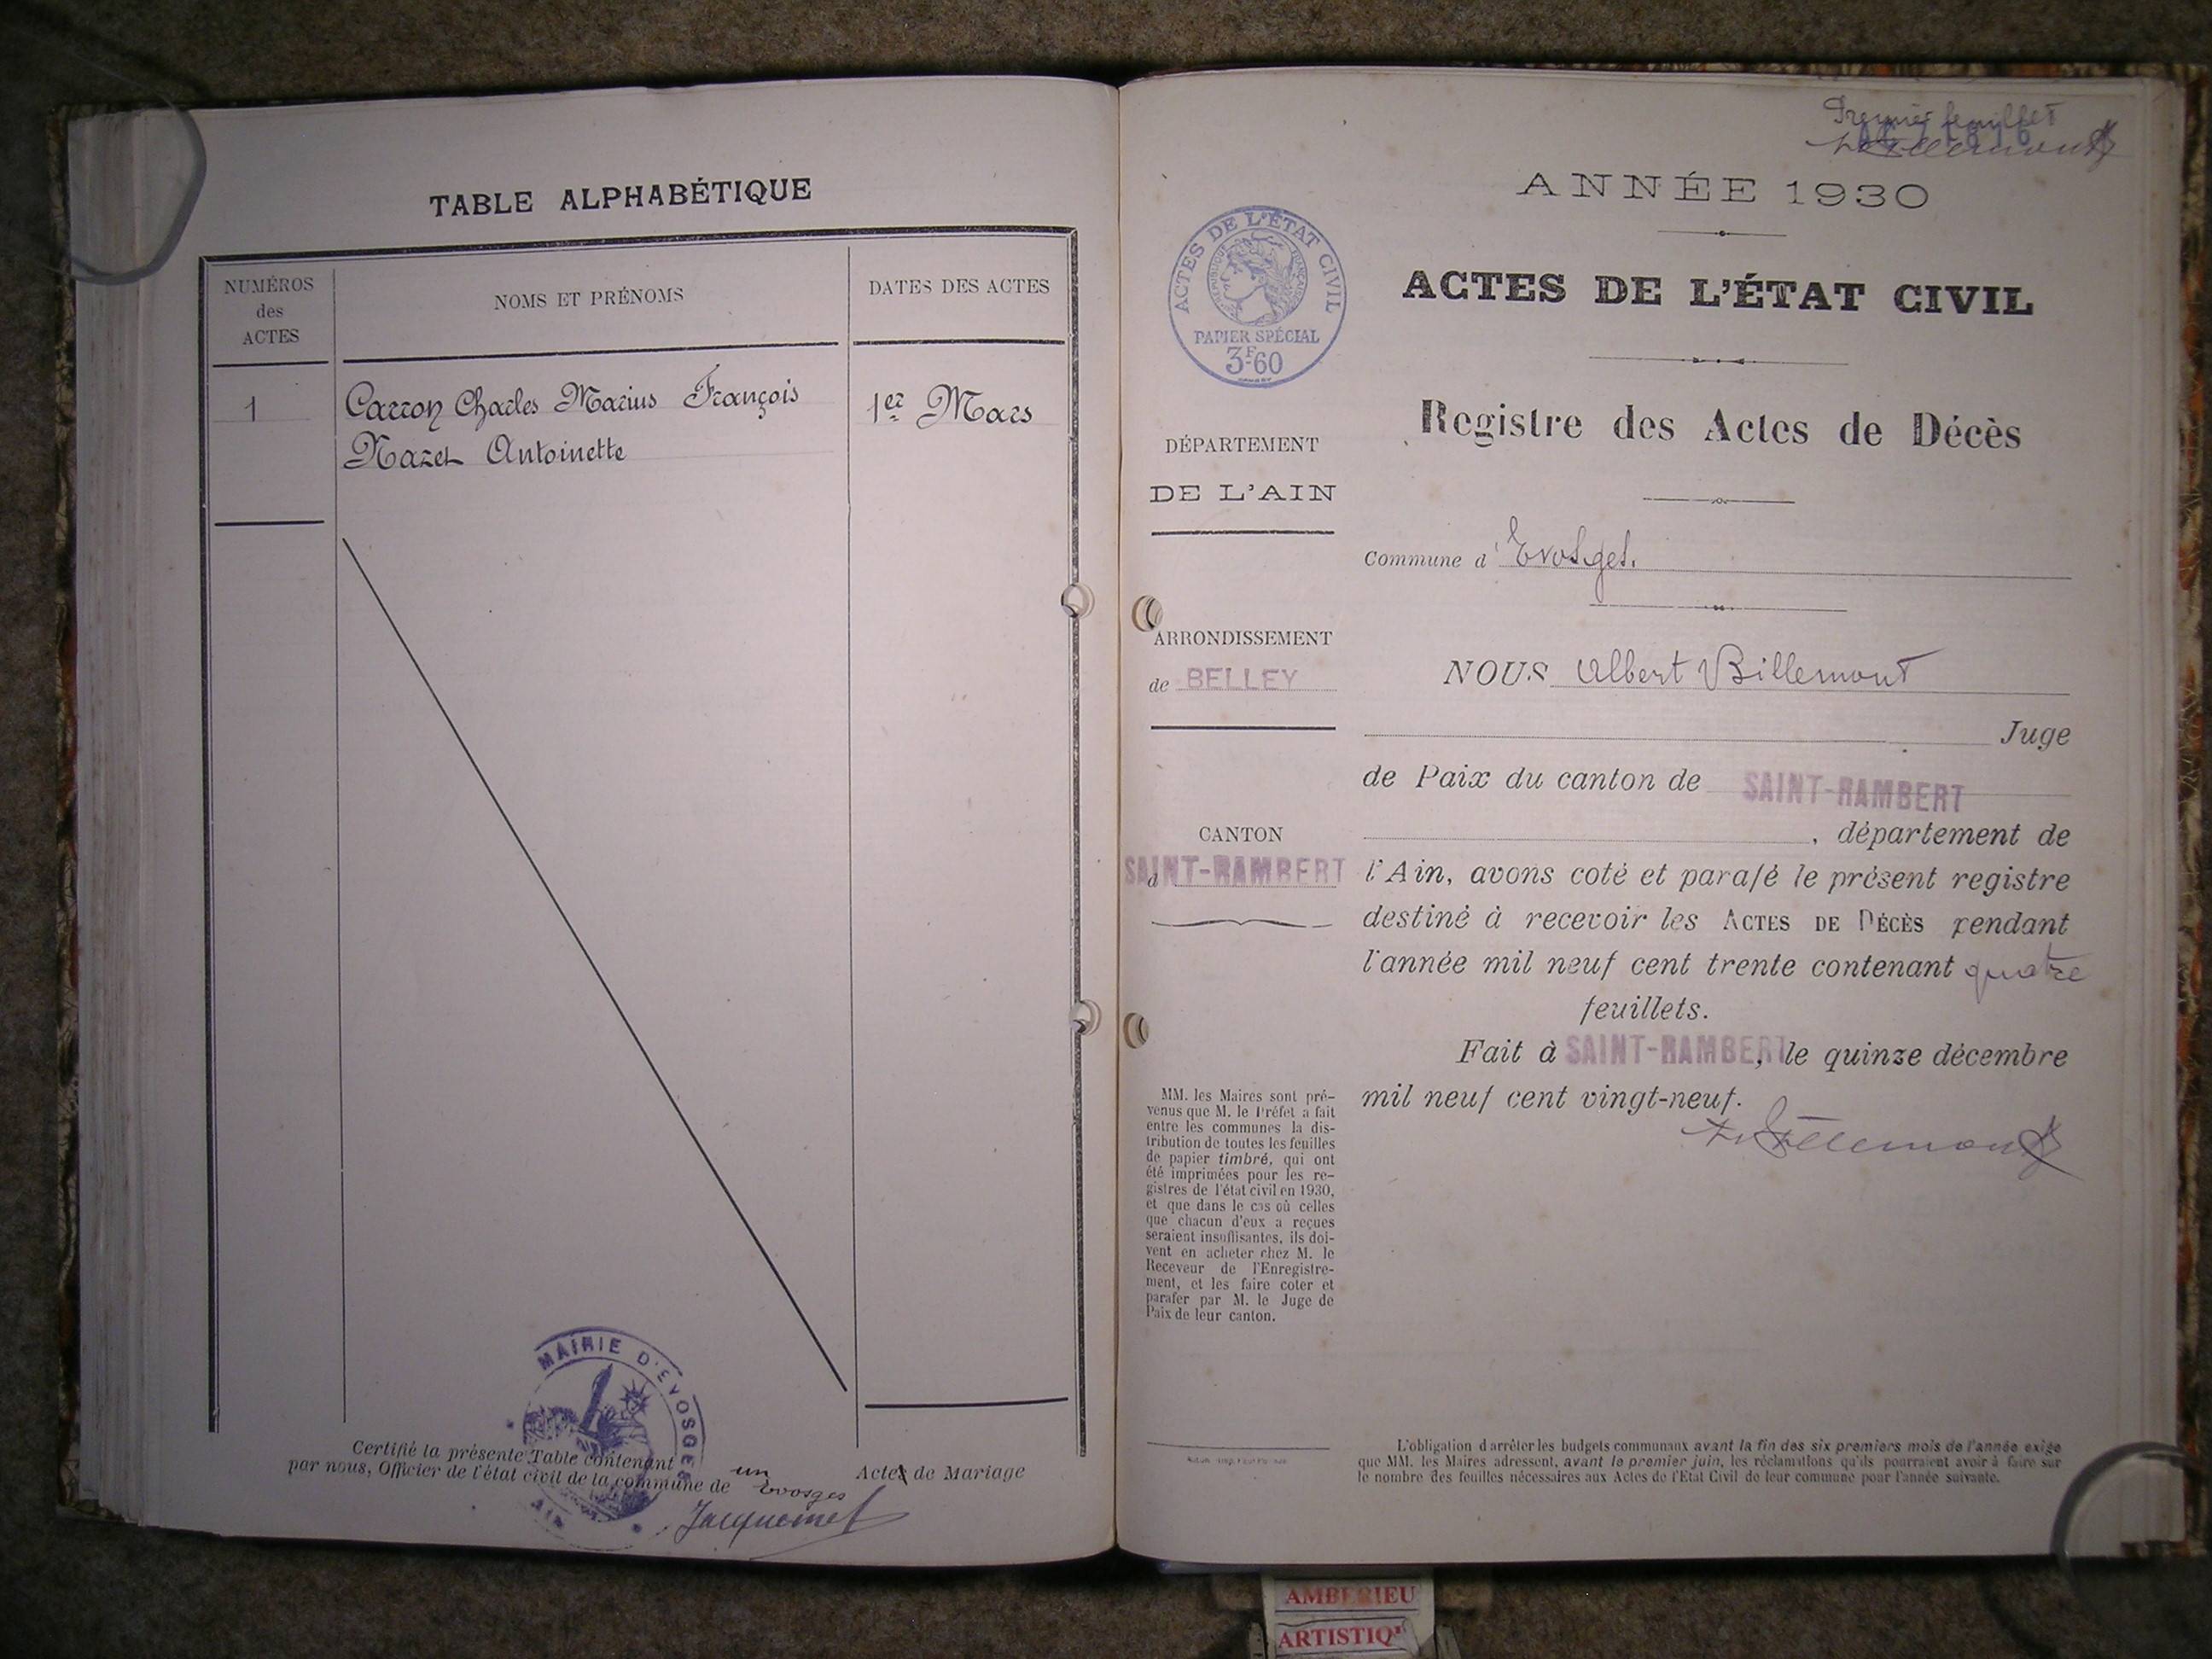 TABLE ALPHABÉTIQUE
NUMÉROS
des
ACTES
NOMS ET PRÉNOMS
DATES DES ACTES
1
Carron Charles Marius François
1er Mars
Mazet Antoinette
MAIRIE D'EVOSGES
AIN
Certifié la présente Table contenant un Actes de Mariage
par nous, Officier de l'état civil de la commune de Evosges
Jacquemet
Premier feuillet
ANNÉE 1930
ACTES DE L'ÉTAT CIVIL
RÉPUBLIQUE FRANÇAISE
PAPIER SPÉCIAL
3F60
ACTES DE L'ÉTAT CIVIL
Registre des Actes de Décès
DÉPARTEMENT
DE L'AIN
Commune d'Evosges.
ARRONDISSEMENT
de BELLEY
NOUS Albert Billemont
Juge
de Paix du canton de SAINT-RAMBERT
, département de
CANTON
d SAINT-RAMBERT
l'Ain, avons coté et parafé le présent registre
destiné à recevoir les ACTES DE DÉCÈS pendant
l'année mil neuf cent trente contenant quatre
feuillets.
Fait à SAINT-RAMBERT, le quinze décembre
mil neuf cent vingt-neuf.
Billemont
MM. les Maires sont pré-
venus que M. le Préfet a fait
entre les communes la dis-
tribution de toutes les feuilles
de papier timbré, qui ont
été imprimées pour les re-
gistres de l'état civil en 1930,
et que dans le cas où celles
que chacun d'eux a reçues
seraient insuffisantes, ils doi-
vent en acheter chez M. le
Receveur de l'Enregistre-
ment, et les faire coter et
parafer par M. le Juge de
Paix de leur canton.
L'obligation d'arrêter les budgets communaux avant la fin des six premiers mois de l'année exige
que MM. les Maires adressent, avant le premier juin, les réclamations qu'ils pourraient avoir à faire sur
le nombre des feuilles nécessaires aux Actes de l'Etat Civil de leur commune pour l'année suivante.
AMBERIEU
ARTISTIQ